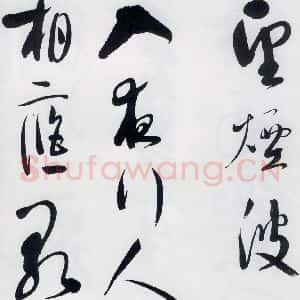 煙波
入夜行人
相應
Shufawang.CN